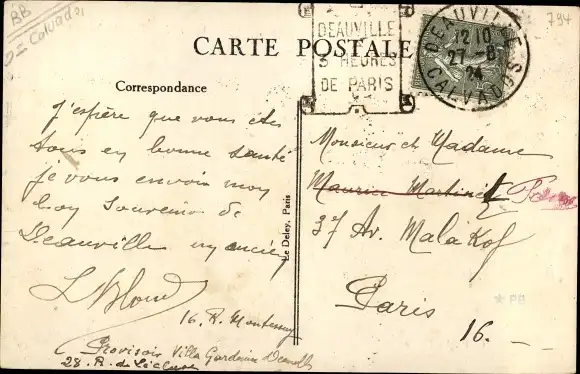 BB
Calvados
794
CARTE POSTALE
DEAUVILLE
3 HEURES
DE PARIS
DEAUVILLE
12 10
27 - 8
24
CALVADOS
Correspondance
J'espère que vous êtes
tous en bonne santé
je vous envoie mon
bon souvenir de
Deauville
16. R. Montessuy
Provisoir Villa Deauville
28. R. de
Le Deley, Paris
Monsieur et Madame
Maurice Martinet
37 Av. Malakof
Paris
16.
PB